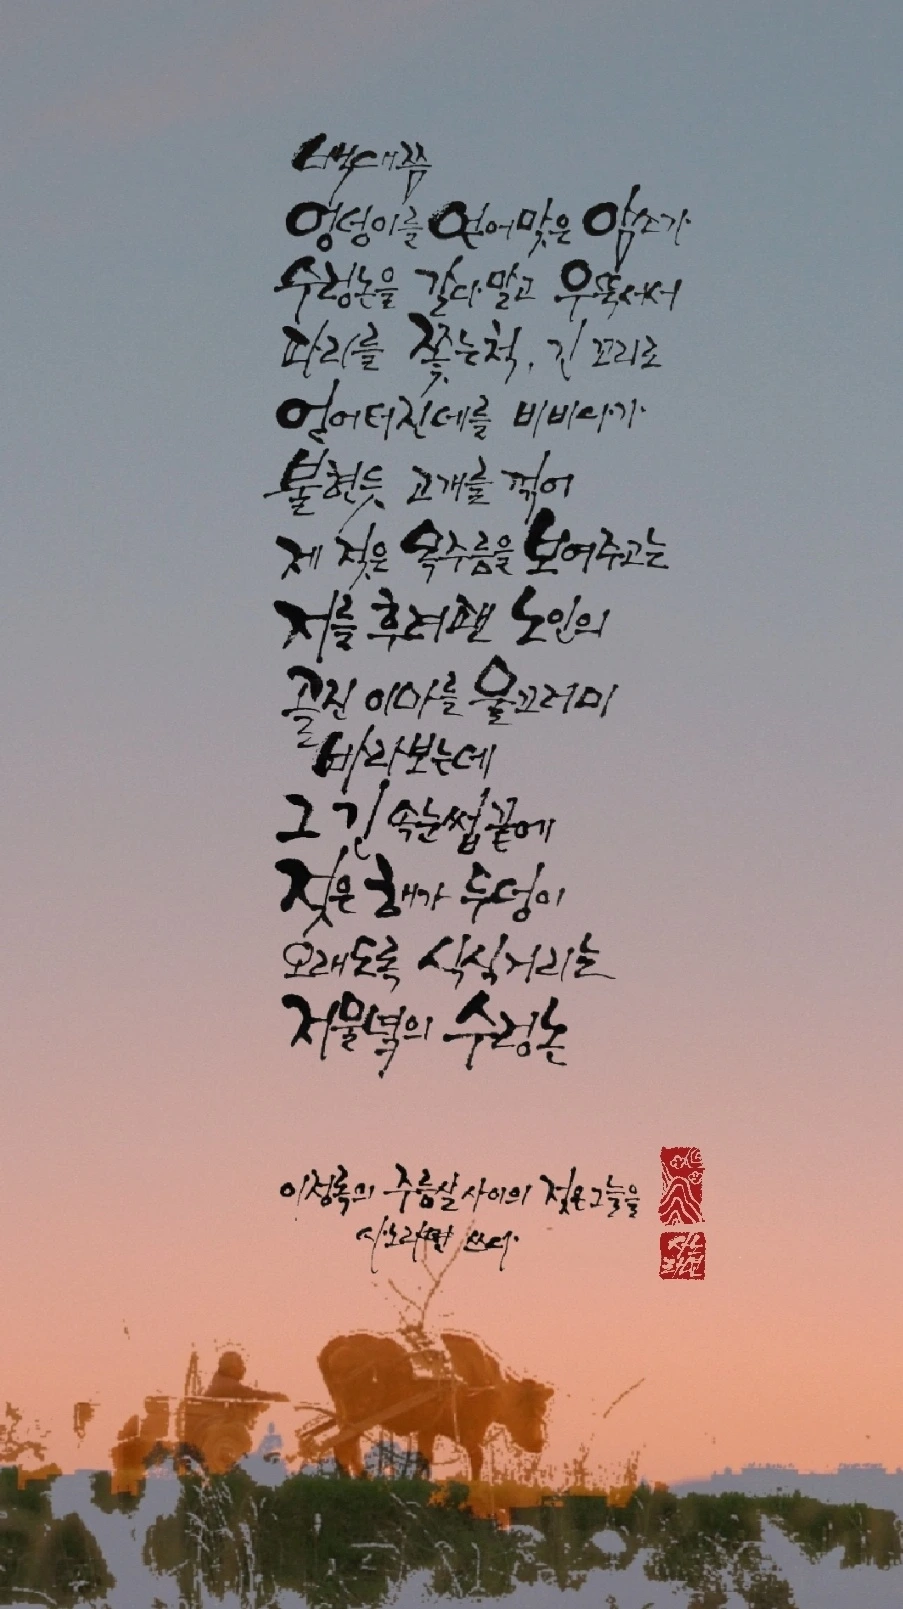 백대쯤
엉덩이를 얻어맞은 암소가
수렁논을 갈다말고 우뚝서서
파리를 쫓는척, 긴 꼬리로
얻어터진데를 비비다가
불현듯 고개를 꺾어
제 젖은 목주름을 보여주고는
저를 후려팬 노인의
골진 이마를 물끄러미
바라보는데
그 긴 속눈썹 끝에
젖은 해가 두덩이
오래도록 식식거리는
저물녘의 수렁논
이정록의 주름살 사이의 젖은 그늘을
시노라면 쓰다